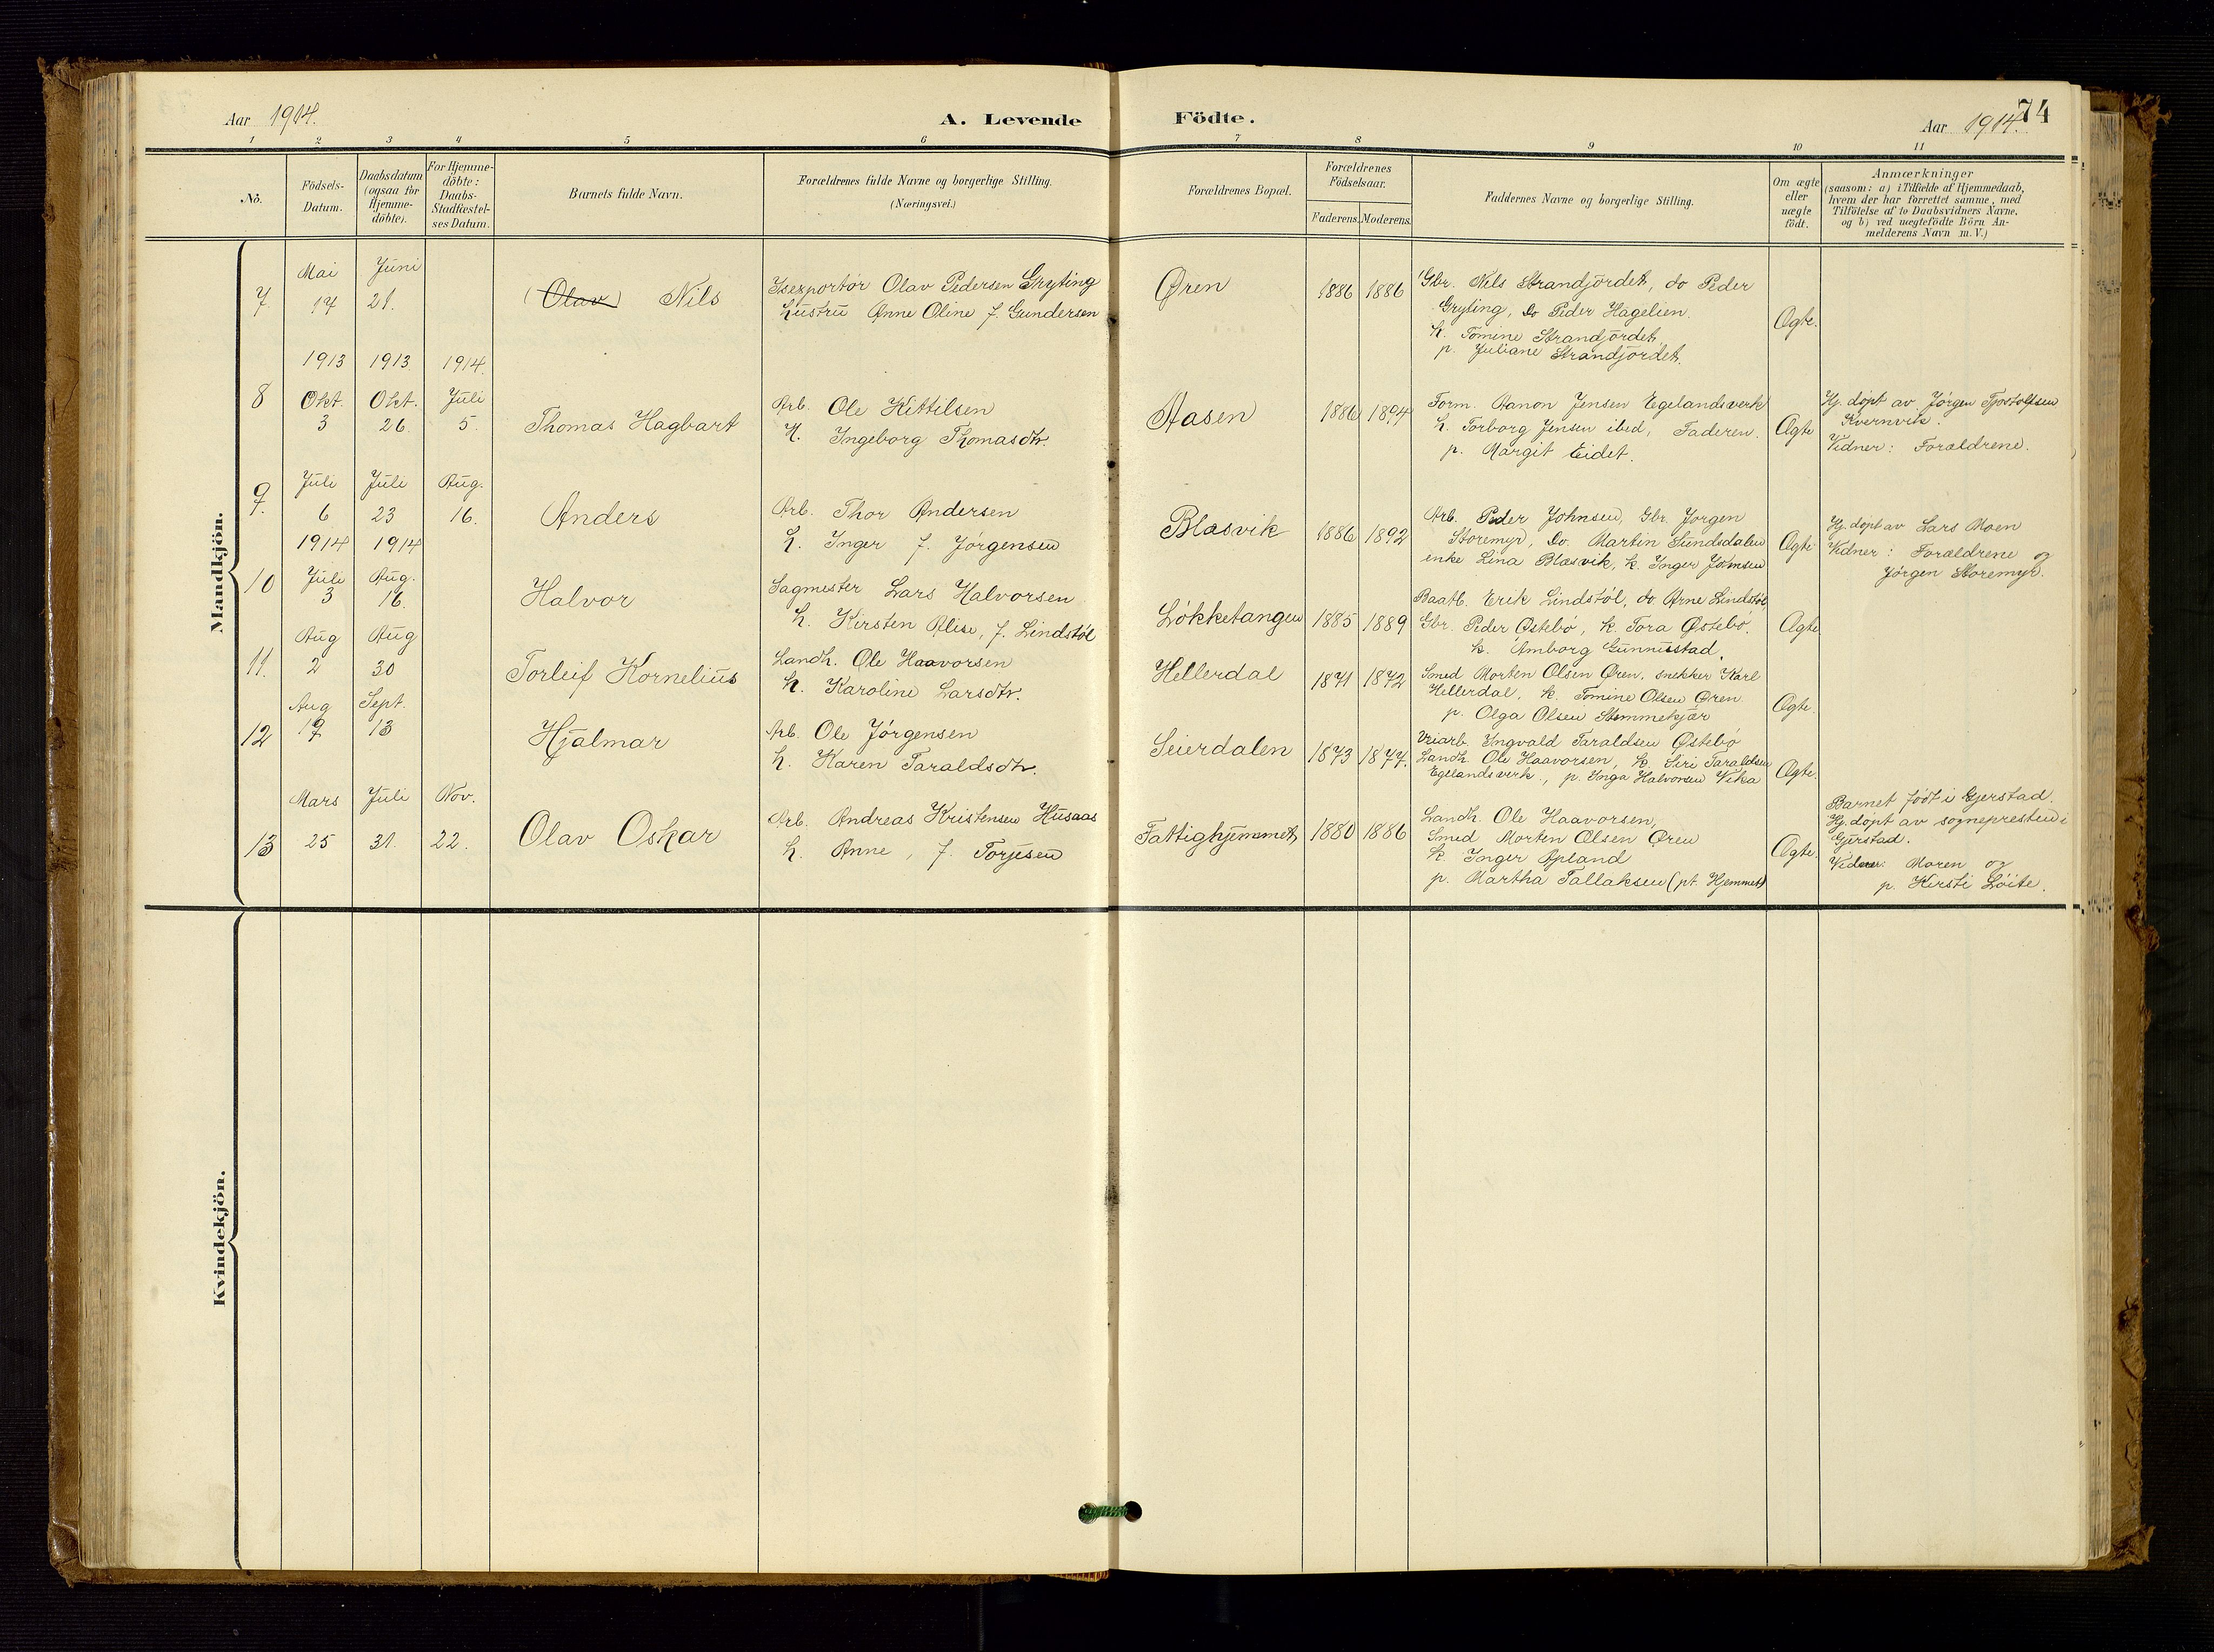 Aar 1914.
A. Levende Födte.
74
Aar 1914.
1 2 3 4 5 6 7 8 9 10 11
Nö.
Födsels-
Datum.
Daabsdatum
(ogsaa for
Hjemme-
döbte).
For Hjemme-
döbte:
Daabs-
Stadfæstel-
ses Datum.
Barnets fulde Navn.
Forældrenes fulde Navne og borgerlige Stilling.
(Næringsvei.)
Forældrenes Bopæl.
Forældrenes
Födselsaar.
Faderens. Moderens.
Faddernes Navne og borgerlige Stilling.
Om ægte
eller
uægte
födt.
Anmærkninger
(saasom: a) i Tilfælde af Hjemmedaab,
hvem der har forrettet samme, med
Tilföielse af to Daabsvidners Navne,
og b) ved uægtefödte Börn An-
melderens Navn m. V.)
Mandkjön.
7
Mai
14
Juni
21.
(Olav) Nils
Isexportör Olav Pedersen Gryting
Hustru Anne Oline f. Gundersen
Øren
1886 1886
Gbr. Nils Strandjordet, do Peder
Gryting, do Peder Hagelien.
k. Tomine Strandjordet,
p. Juliane Strandjordet.
Ægte.
8
1913
Okt.
3
1913
Okt.
26.
1914.
Juli
5.
Thomas Hagbart
Arb. Ole Kittilsen
H. Ingeborg Thomasdtr.
Aasen
1886 1894
Form. Aanon Jensen Egelandsverk
k. Torborg Jensen ibid, Faderen.
p. Margit Eidet.
Ægte
Hj. döpt av Jörgen Tjostolfsen
Kvernvik.
Vidner: Foræeldrene.
9.
Juli
6
Juli
23
Aug.
16.
Anders
Arb. Thor Andersen
H. Inger f. Jörgensen
Blæsvik
1886 1892
Arb. Peder Johnsen, Gbr. Jörgen
Storemyr, do. Martin Sundsdalen
enke Lina Blæsvik, k. Inger Johnsen
Ægte
Hj. döpt av Lars Moen
Vidner: Forældrene og
Jörgen Storemyr.
10
1914
Juli
3
1914
Aug.
16.
Halvor
Sagmester Lars Halvorsen
H. Kirsten Alise, f. Lindstöl
Lökketangen
1885 1889
Baatb. Erik Lindstöl, do. Arne Lindstöl,
Gbr. Peder Østebö, k. Tora Østebö.
k. Amborg Gunnustad.
Ægte
11.
Aug
2
Aug
30
Torleif Kornelius
Landh. Ole Haavorsen
H. Karoline Larsdtr.
Hellerdal
1871 1872
Smed Morten Olsen Øren, snekker Karl
Hellerdal, k. Tomine Olsen Øren
p. Olga Olsen Stemmekjær
Ægte.
12
Aug
Sept.
13
Hjalmar
Arb. Ole Jörgensen
H. Karen Taraldsdtr.
Seierdalen
1873 1877.
Veiarb. Ingvald Taraldsen Østebö
Landh. Ole Haavorsen, k. Siri Taraldsen
Egelandsverk., p. Inga Halvorsen Vika
Ægte.
13
Mars
25
Juli
31.
Nov.
22.
Olav Oskar
Arb. Andreas Kristensen Husaas
H. Anne, f. Torjesen
Fattighjemmet
1880 1886
Landh. Ole Haavorsen,
Smed Morten Olsen Øren
k. Inger Apland
p. Martha Tallaksen (pt. Hjemmet)
Ægte.
Barnet födt i Gjerstad.
Hj. döpt av sognepresten i
Gjerstad.
Vidner: Moren og
p. Kirsti Löite.
Kvindekjön.